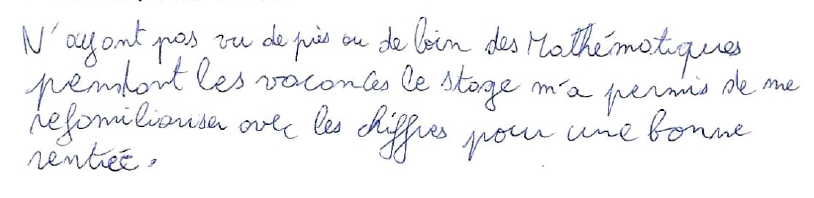 N'ayant pas vu de près ou de loin des Mathématiques
pendant les vacances le stage m'a permis de me
refamiliariser avec les chiffres pour une bonne
rentrée.